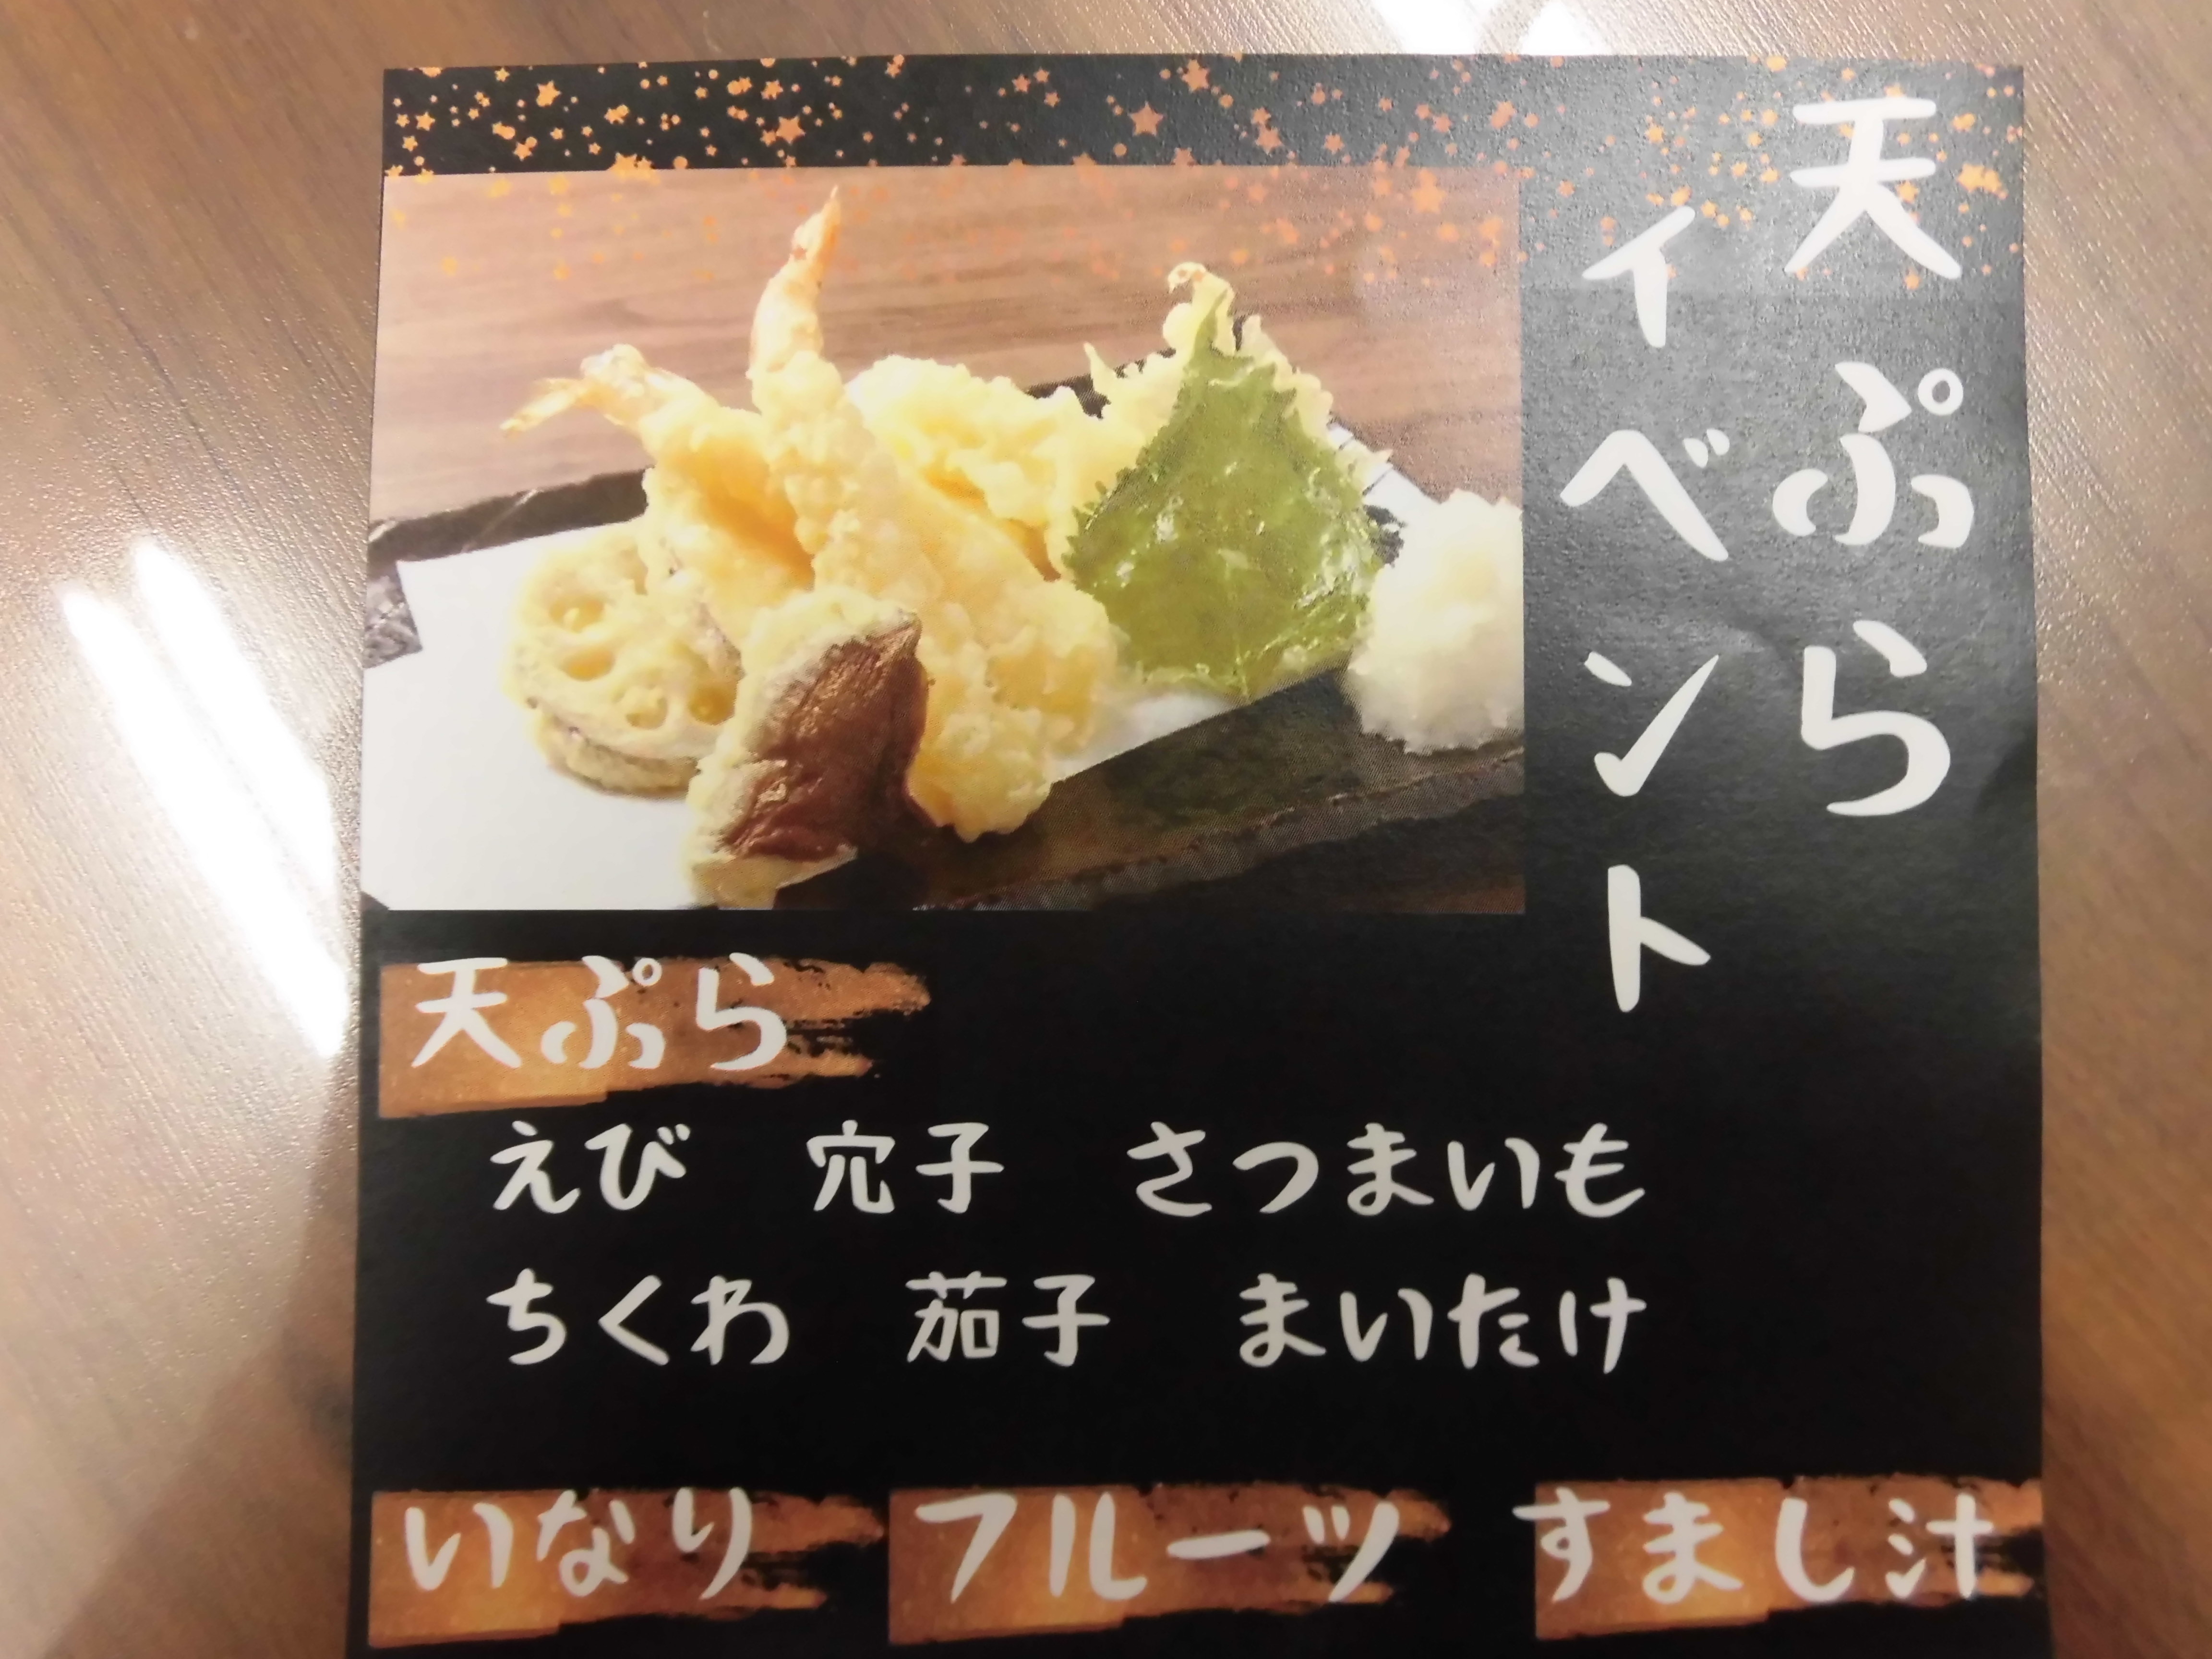 天ぷら
イベント
天ぷら
えび 穴子 さつまいも
ちくわ 茄子 まいたけ
いなり フルーツ すまし汁